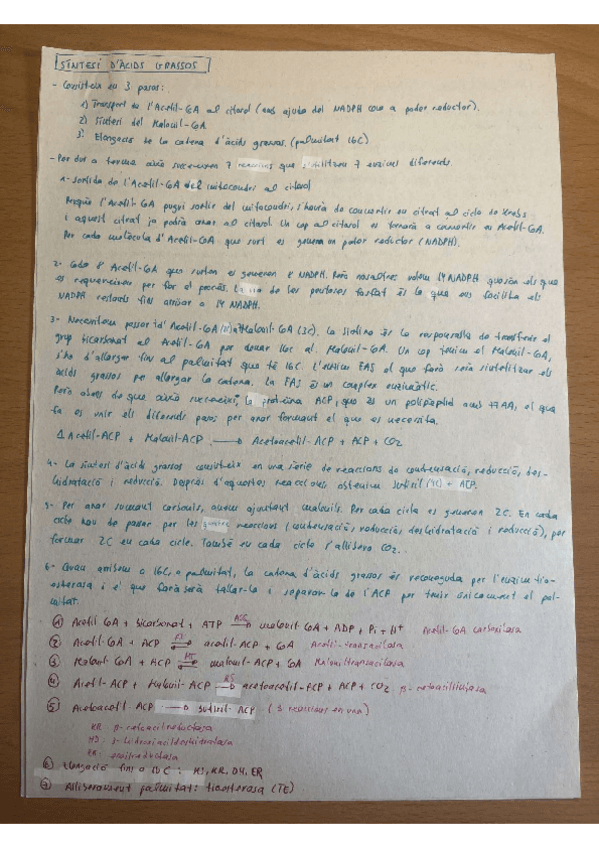 SÍNTESI D'ÀCIDS GRASSOS
- Consisteix en 3 passos:
1) Transport de l'Acetil-CoA al citosol (amb ajuda del NADPH com a poder reductor).
2) Síntesi del Malonil-CoA
3) Elongació de la cadena d'àcids grassos. (palmitat 16C)
- Per dur a terme això succeeixen 7 reaccions que utilitzen 7 enzims diferents.
1- sortida de l'Acetil-CoA del mitocondri al citosol
Perquè l'Acetil-CoA pugui sortir del mitocondri, s'haurà de convertir en citrat al cicle de Krebs
i aquest citrat ja podrà anar al citosol. Un cop al citosol es tornarà a convertir en Acetil-CoA.
Per cada molècula d'Acetil-CoA que surt es genera un poder reductor (NADPH).
2- Cada 8 Acetil-CoA que surten es generen 8 NADPH. Però nosaltres volem 14 NADPH que són els que
es requereixen per fer el procés. La via de les pentoses fosfat és la que ens facilita els
NADPH restants fins arribar a 14 NADPH.
3- Necessitem passar d'Acetil-CoA (2C) a Malonil-CoA (3C). La biotina és la responsable de transferir el
grup bicarbonat al Acetil-CoA per donar lloc al Malonil-CoA. Un cop tenim el Malonil-CoA,
s'ha d'allargar fins al palmitat que té 16C. L'enzim FAS el que farà serà sintetitzar els
àcids grassos per allargar la cadena. La FAS és un complex enzimàtic.
Però abans de que això succeeixi, la proteïna ACP, que és un polipèptid amb 77AA, el que
fa és unir els diferents passos per anar formant el que es necessita.
Acetil-ACP + Malonil-ACP → Acetoacetil-ACP + ACP + CO2
4- La síntesi d'àcids grassos consisteix en una sèrie de reaccions de condensació, reducció, des-
hidratació i reducció. Després d'aquestes reaccions obtenim butiril (4C) + ACP.
5- Per anar sumant carbonis, anem ajuntant malonils. Per cada cicle es generen 2C. En cada
cicle hau de passar per les quatre reaccions (condensació, reducció, deshidratació i reducció), per
formar 2C en cada cicle. També en cada cicle s'allibera CO2.
6- Quan arribem a 16C, a palmitat, la cadena d'àcids grassos és reconeguda per l'enzim tio-
esterasa i el que farà serà tallar-lo i separar-lo de l'ACP per tenir únicament el pal-
mitat.
① Acetil CoA + bicarbonat + ATP ACC → malonil-CoA + ADP + Pi + H+ Acetil-CoA carboxilasa
② Acetil-CoA + ACP ⇌ acetil-ACP + CoA Acetil-transacilasa
③ Malonil-CoA + ACP MT ⇌ malonil-ACP + CoA Maloniltransacilasa
④ Acetil-ACP + Malonil-ACP KS → acetoacetil-ACP + ACP + CO2 β-cetoacilsintasa
⑤ Acetoacetil-ACP → butiril-ACP (3 reaccions en una)
KR: β-cetoacilreductasa
HD: 3-hidroxiacildeshidratasa
ER: enoilreductasa
⑥ Elongació fins a 16C: KS, KR, DH, ER
⑦ Alliberament palmitat: tioesterasa (TE)